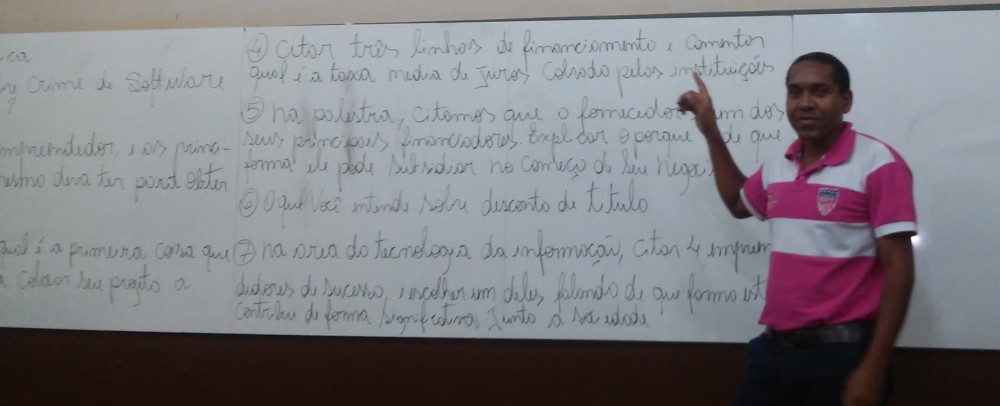 ca
re Crime de Software
?
mpreendedor, e as
mesmo deva ter para obter
qual é a primeira coisa que
colocar seu projeto a
④ Citar três linhas de financiamento e comentar
qual é a taxa media de juros cobrado pelas instituições
⑤ na palestra, citamos que o fornecedor um dos
seus principais financiadores. Explicar o porque de que
forma ele pode subsidiar no começo de seu negoci
⑥ O que Você entende sobre desconto de titulo
⑦ na area da tecnologia da informação, citar 4 empreen
dedores de sucesso, escolher um deles falando de que forma est
contribui de forma significativa junto á sociedade